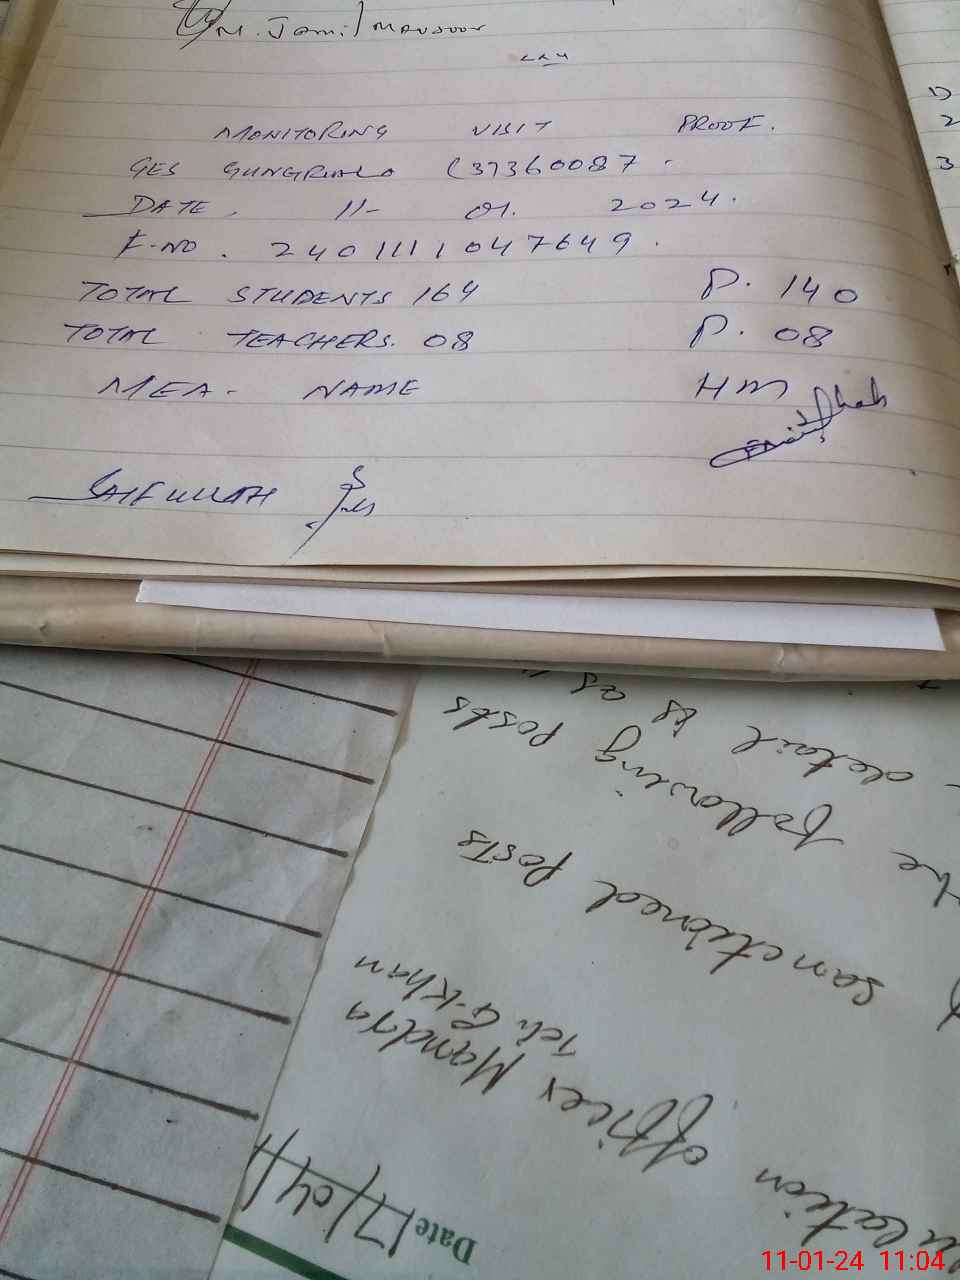 M. Jamil Mansoor
MONITORING VISIT PROOF.
GES GUNGRILLA (37360087
DATE. 11- 01. 2024.
F-NO. 2401111047649.
TOTAL STUDENTS 164 P. 140
TOTAL TEACHERS. 08 P. 08
MEA- NAME HM
SAIFULLAH
1)
2
3
Date 17/04/
officer Mandra
Teh. G.Khan
sanctioned Posts
the following Posts
detail is as
11-01-24 11:04